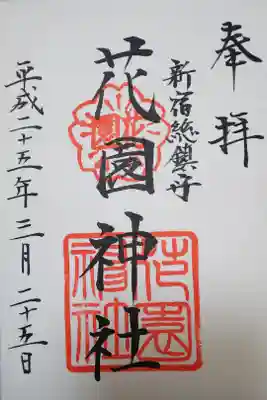 奉拝
新宿総鎮守
花園神社
平成二十五年三月二十五日